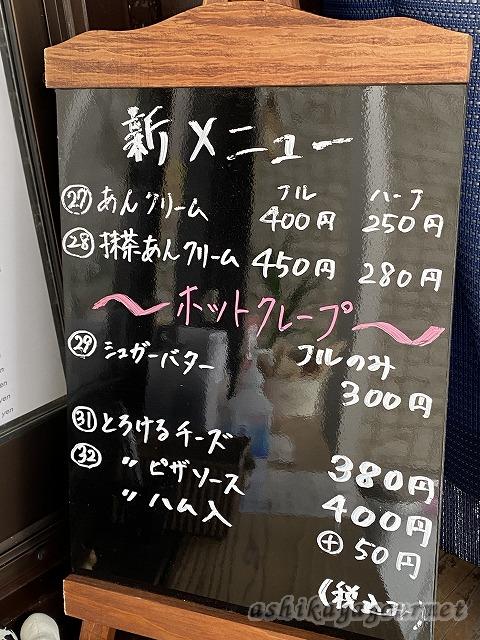 新メニュー
フル ハーフ
㉗ あんクリーム 400円 250円
㉘ 抹茶あんクリーム 450円 280円
〜ホットクレープ〜
㉙ シュガーバター フルのみ
300円
㉛ とろけるチーズ 380円
㉜ 〃 ピザソース 400円
〃 ハム入 ⊕50円
(税込
yen
yen
yen